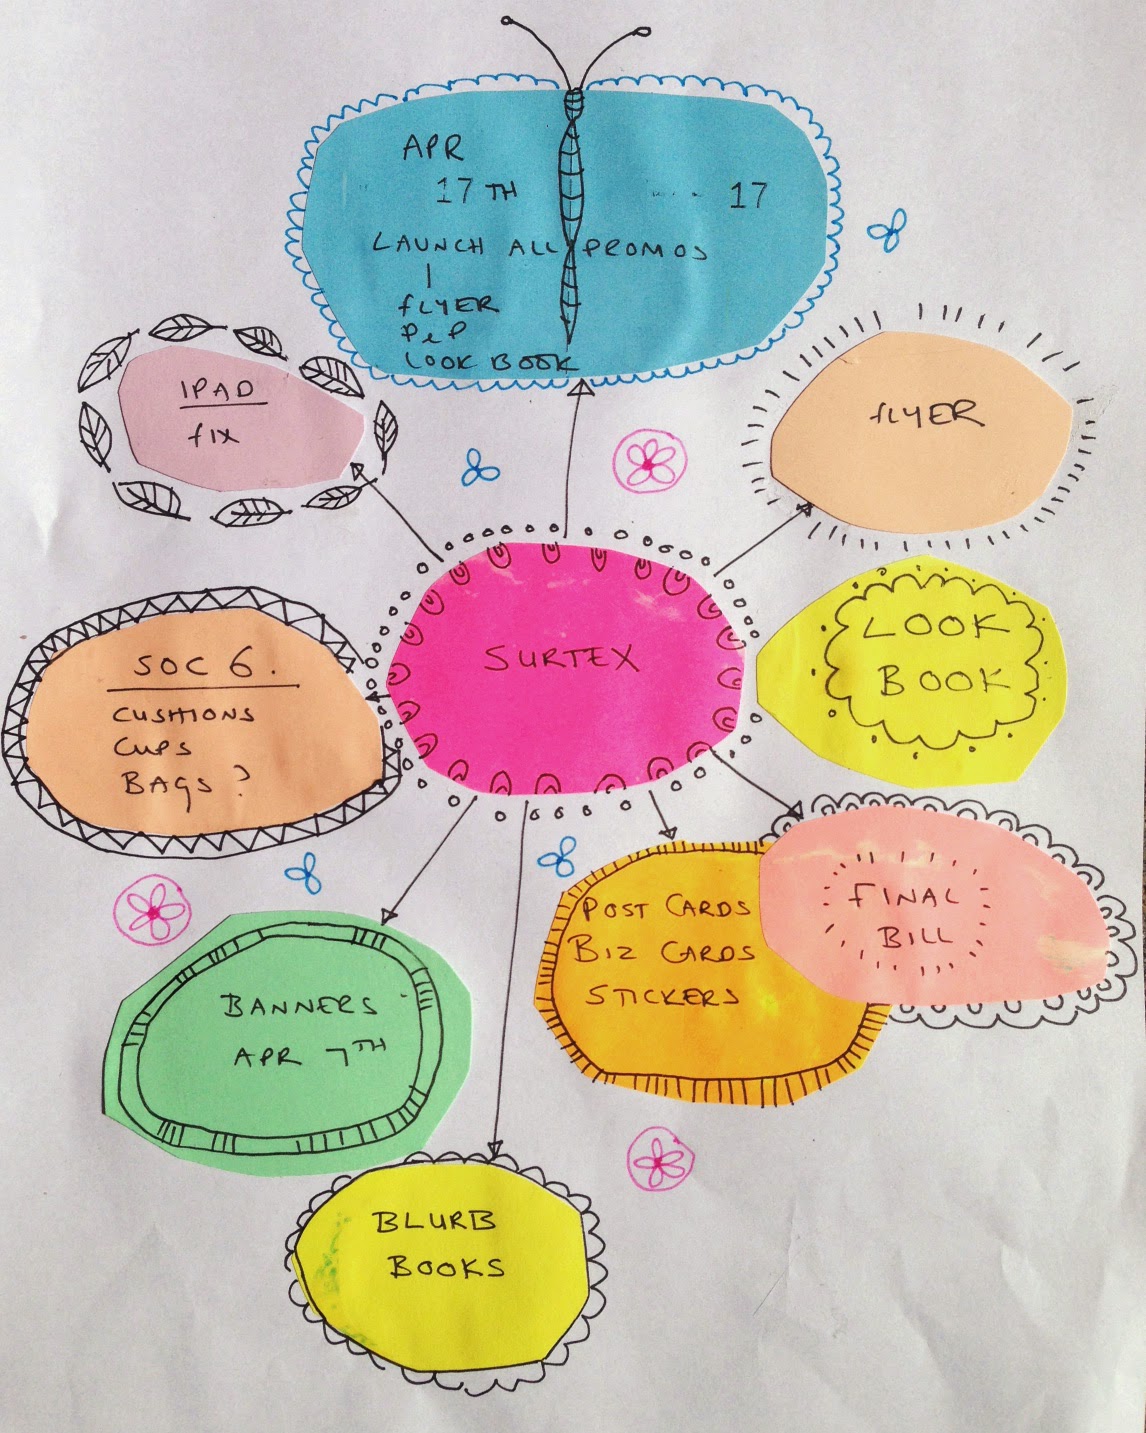 APR
17TH 17
LAUNCH ALL PROMOS
FLYER
P&P
LOOK BOOK
IPAD
FIX
FLYER
SURTEX
LOOK
BOOK
SOC 6.
CUSHIONS
CUPS
BAGS?
POST CARDS
BIZ CARDS
STICKERS
FINAL
BILL
BANNERS
APR 7TH
BLURB
BOOKS